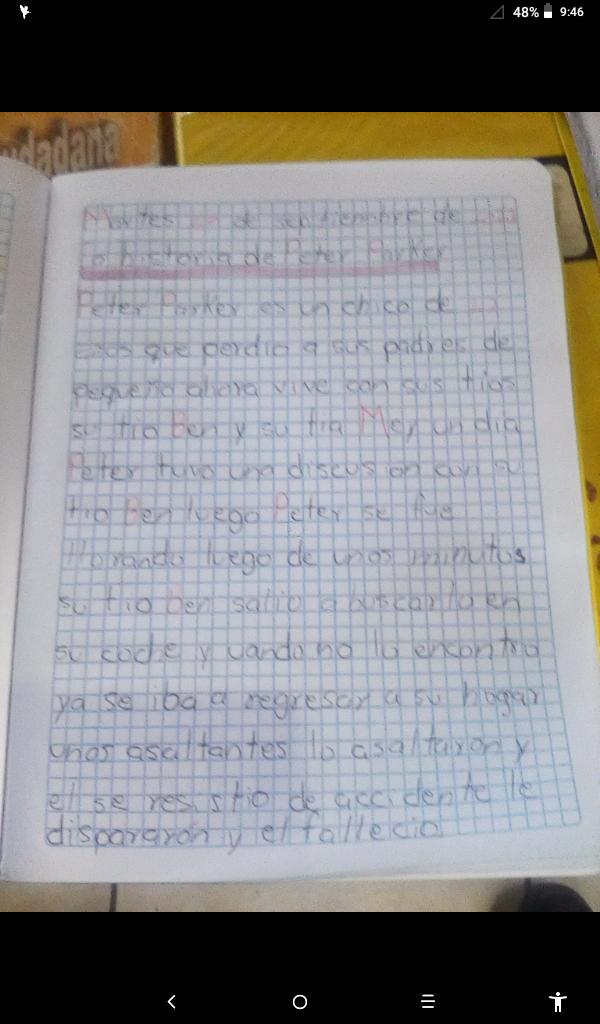 48% 9:46
udadana
Martes de septiembre de
La historia de Peter Parker
Peter Parker es un chico de
que perdio a sus padres de
pequeño ahora vive con sus tios
su tio Ben y su tia Mey un dia
Peter tuvo una discusion con su
tio Ben luego Peter se fue
llorando luego de unos minutos
su tio Ben salio a buscarlo en
su coche y uando no lo encontro
ya se iba a regresar a su hogar
unos asaltantes lo asaltaron y
el se resistio de accidente le
dispararon y el fallecio